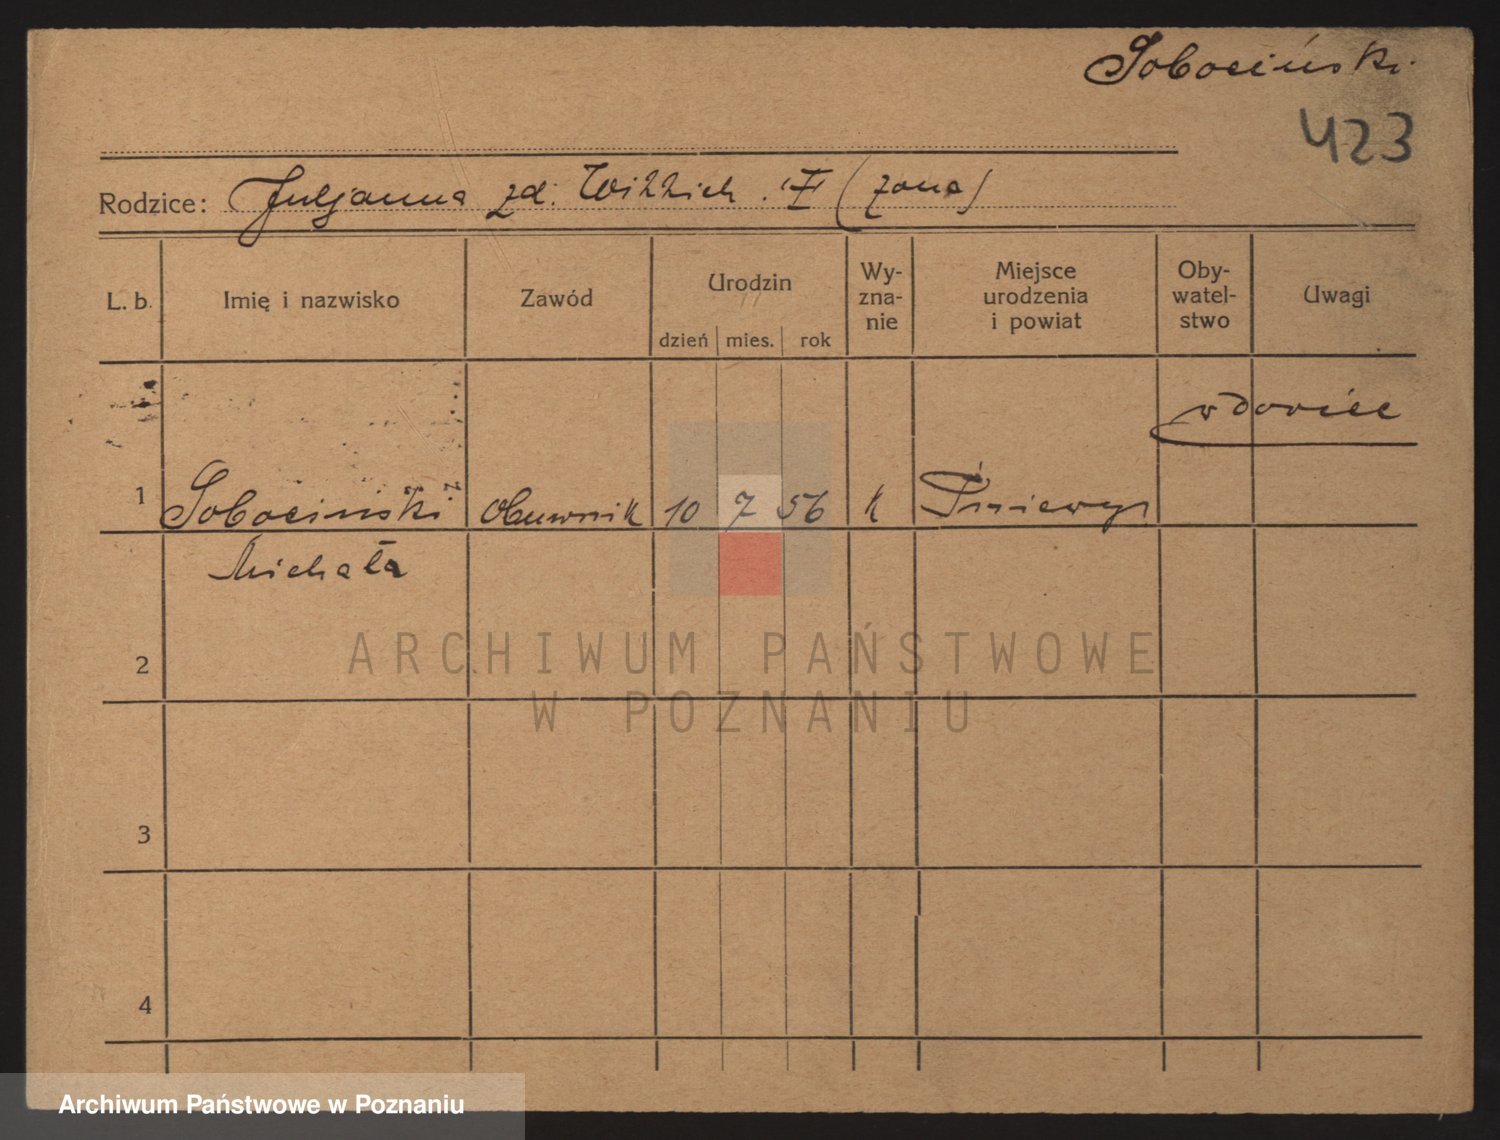 Sobociński
423
Rodzice: Juljanna zd. Wittich. I (żona)
L. b.
Imię i nazwisko
Zawód
Urodzin
dzień
mies.
rok
Wy-
zna-
nie
Miejsce
urodzenia
i powiat
Oby-
watel-
stwo
Uwagi
wdowiec
1
Sobociński
Obuwnik
10
7
56
k
Pniewy
Michał
2
3
4
ARCHIWUM PAŃSTWOWE
W POZNANIU
Archiwum Państwowe w Poznaniu